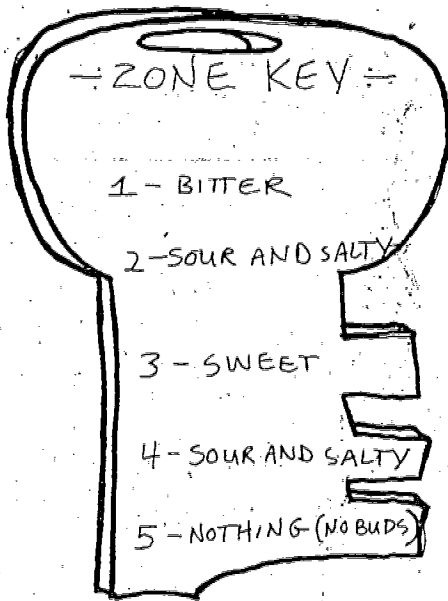 ÷ZONE KEY÷
1 - BITTER
2-SOUR AND SALTY
3 - SWEET
4-SOUR AND SALTY
5-NOTHING (NO BUDS)